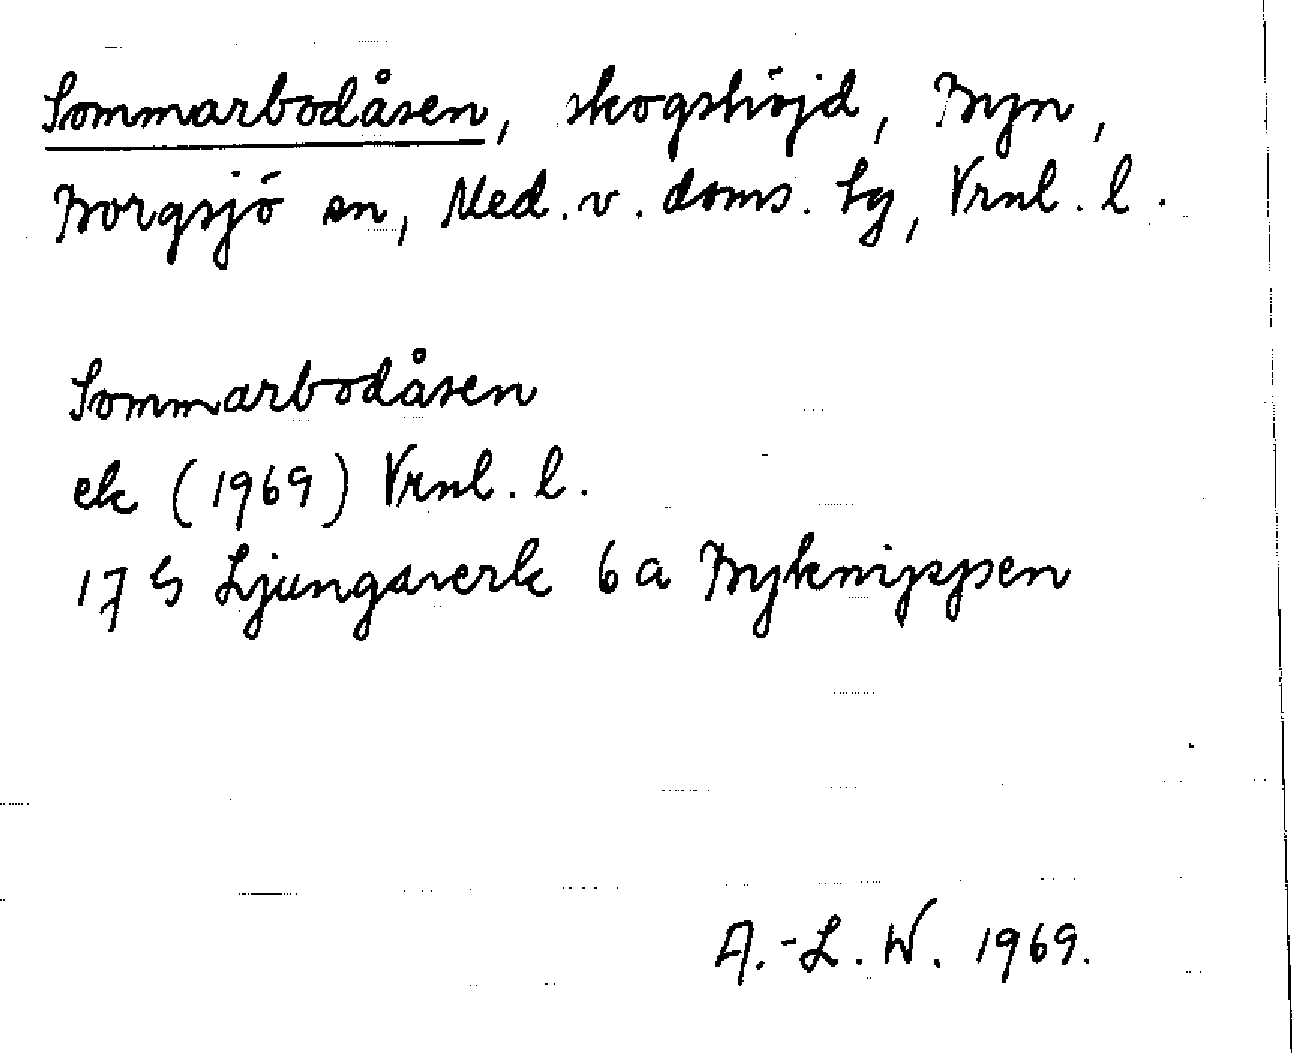 Sommarbodåsen, skogshöjd, Byn,
Borgsjö sn, Med. v. doms. tg, Vrnl. l.
Sommarbodåsen
ek (1969) Vrnl. l.
17 G Ljungaverk 6 a Byknippen
A.-L. W. 1969.